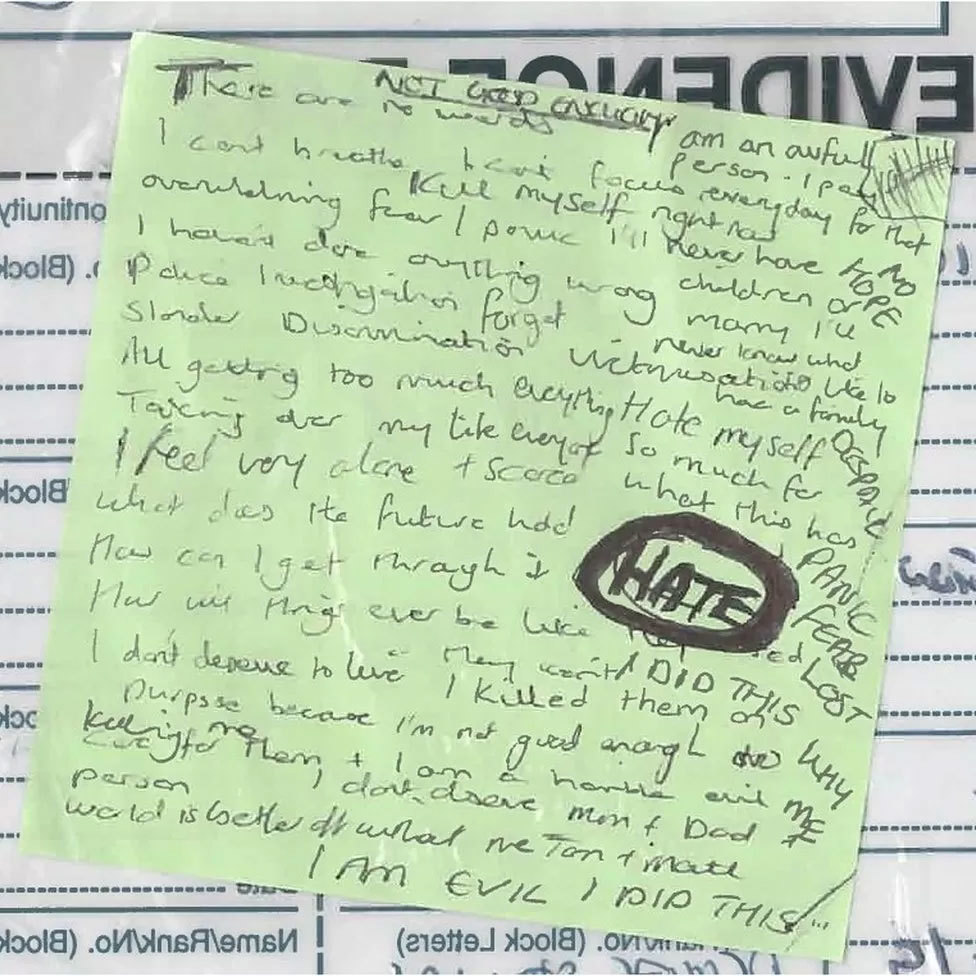 EVIDENCE
NOT GOOD ENOUGH
There are no words
I am an awful person. I pay
everyday for that
I can't breathe I can't focus
overwhelming fear / panic
Kill myself right now
I'll never have children or
marry I'll never know what
like to have a family
NO HOPE
I haven't done anything wrong
Police Investigation forget
Slander Discrimination
All getting too much everything
Taking over my life everyof
Hate myself so much for
what this has
DESPAIR
PANIC
FEAR
LOST
I feel very alone + scared
What does the future hold
How can I get through it
HATE
How will things ever be like they
I don't deserve to live
They won't
I DID THIS
WHY ME
I killed them on
purpose because I'm not good enough to
care for them + I am a horrible evil
person
killing me
I don't deserve Mum + Dad
world is better off without me Tom + Matt
I AM EVIL I DID THIS
Name/Rank/No. (Block
(Block Letters)